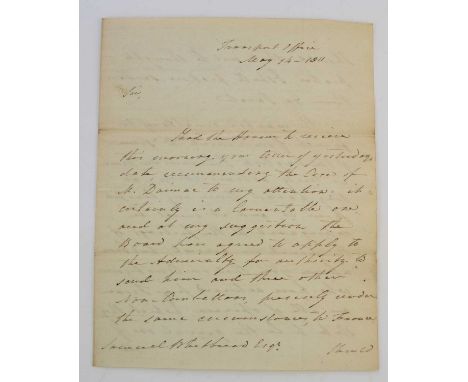 Transport Office
May 14 - 1811
Sir,
I had the Honour to receive
this morning your letter of yesterday's
date recommending the Case of
M. to my attention: it
certainly is a lamentable one
and at my suggestion the
Board have agreed to apply to
the Admiralty for authority to
send him and three other
Non Combattans, precisely under
the same circumstances, to France
Samuel Whitbread Esqr.
Should